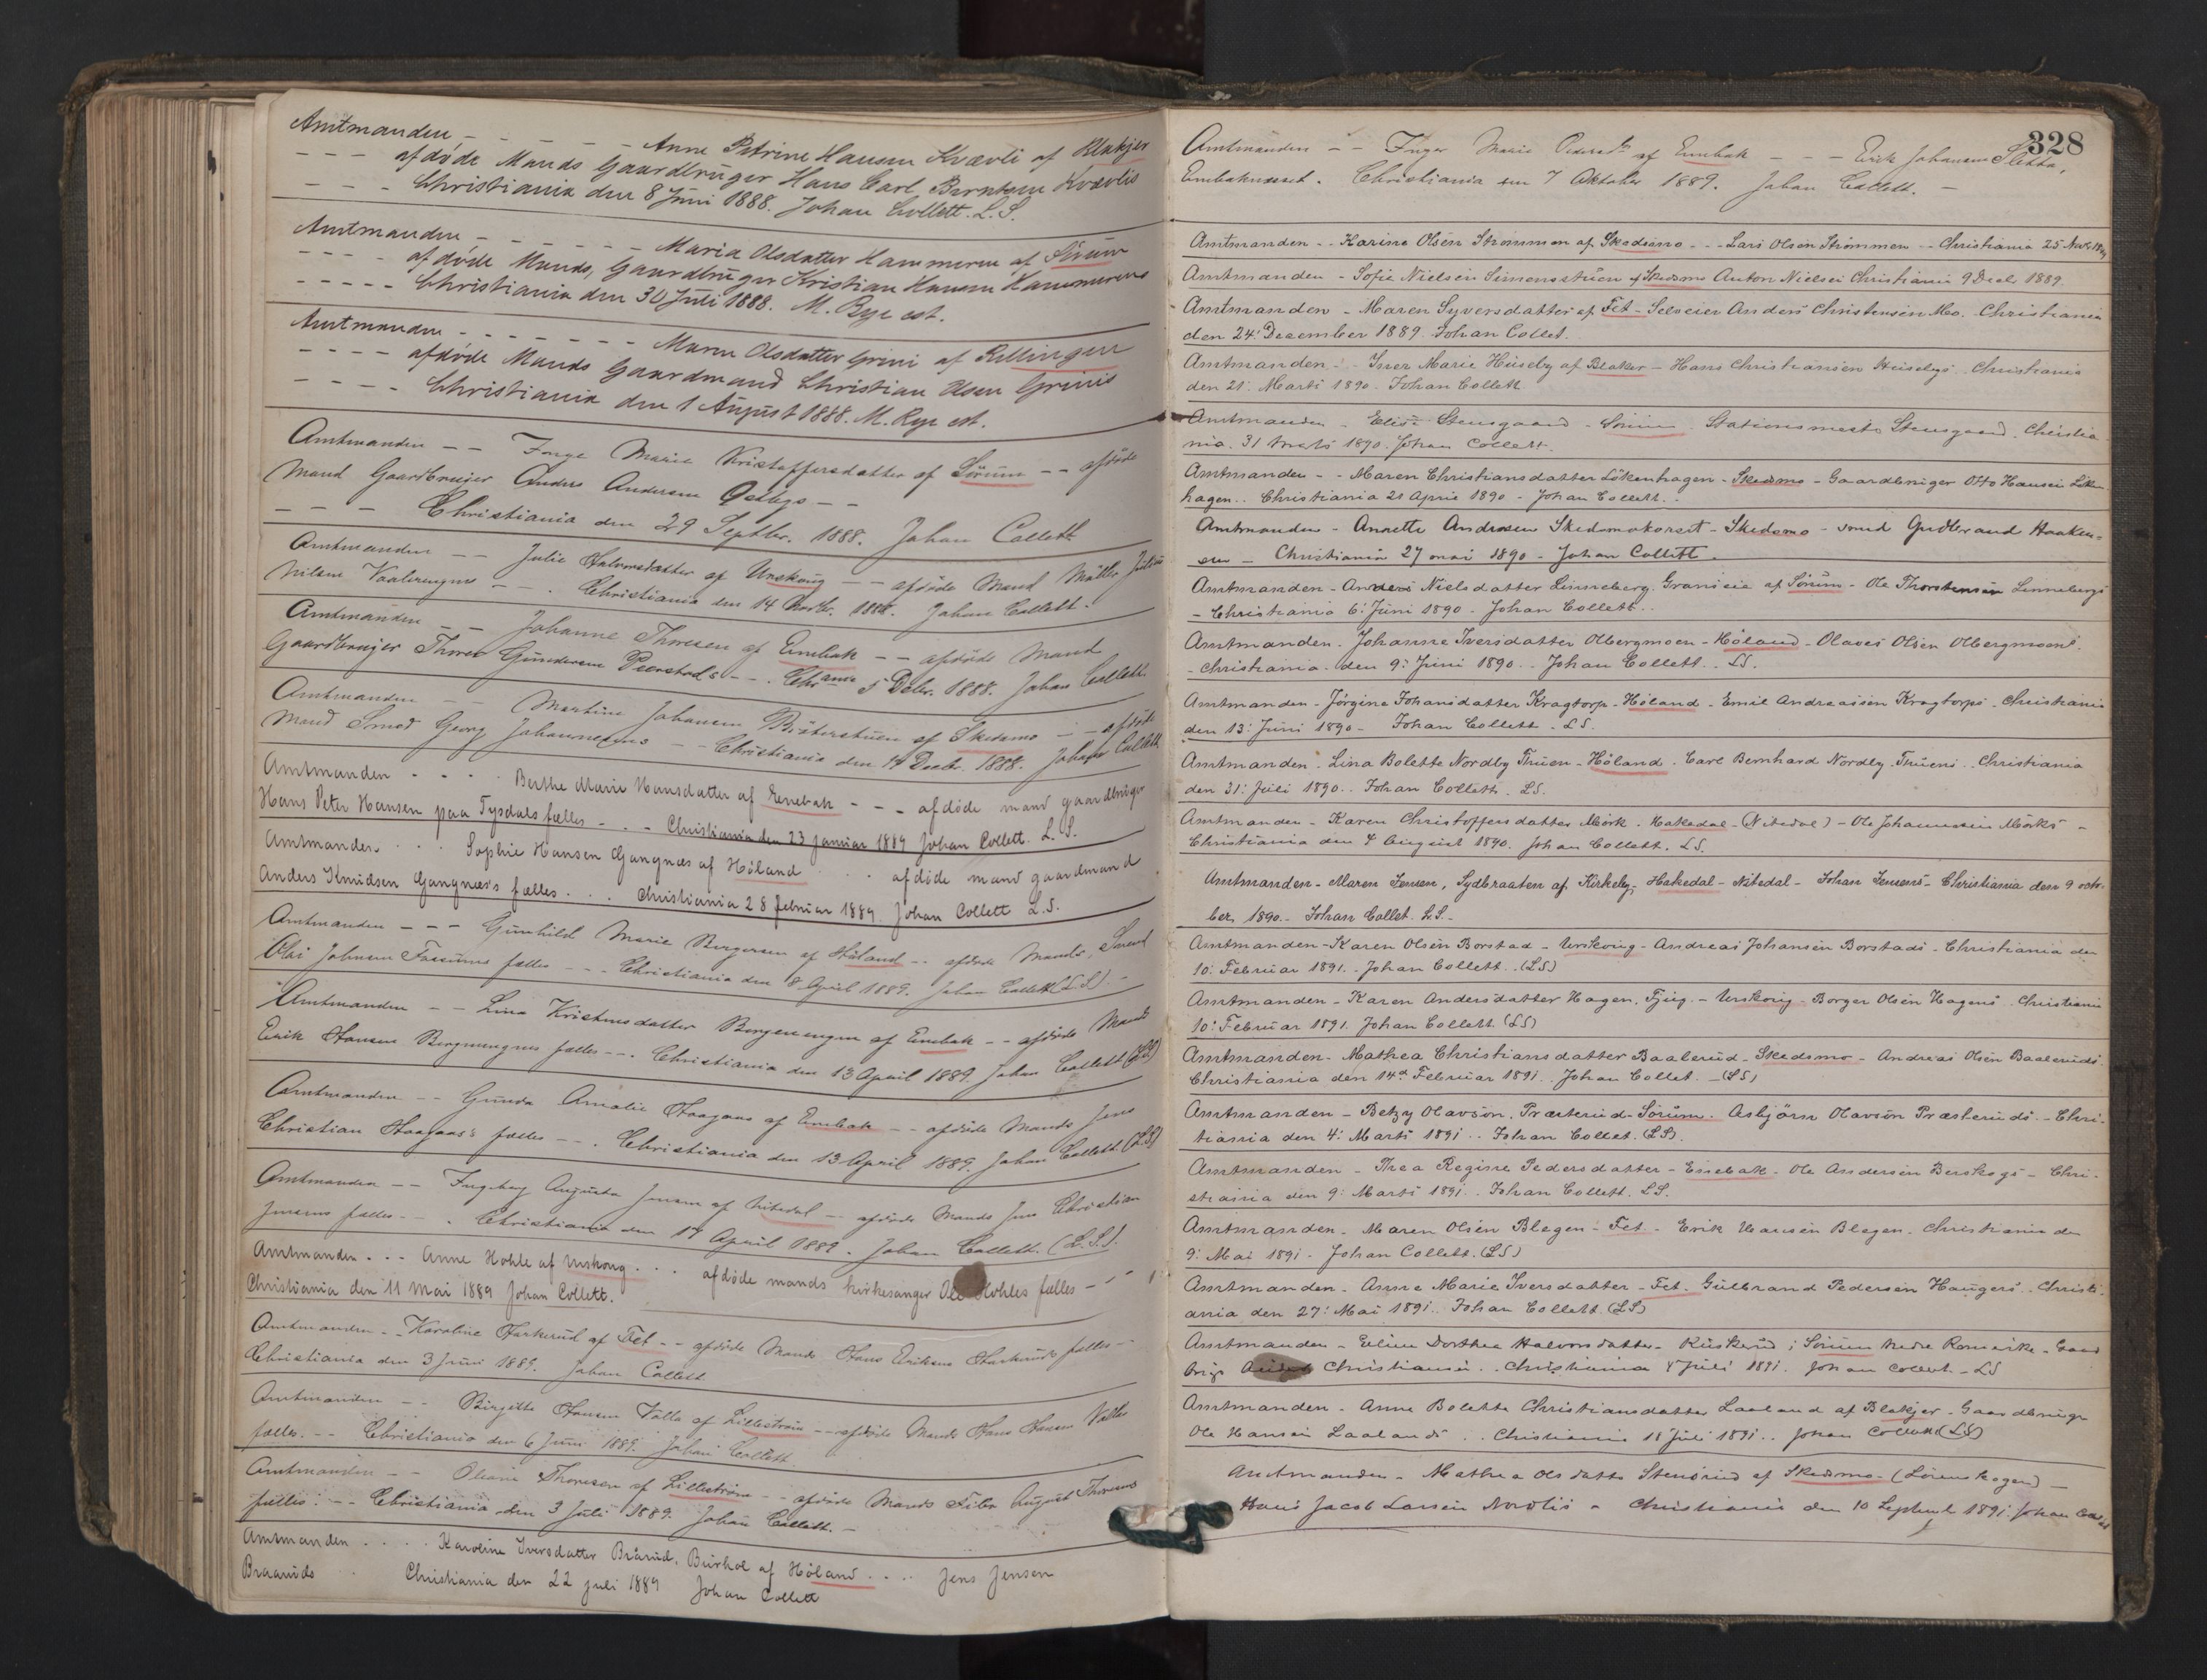 Amtmanden - - - - - Anne Petrine Hansen Kvævli af Blakjer
- - - afdöde Mands Gaardbruger Hans Carl Berntsen Kvævlis
- - - Christiania den 8 Juni 1888. Johan Collett. L.S.
Amtmanden - - - - - - Maria Olsdatter Hammeren af Sörum
- - - - afdöde Mands, Gaardbruger Kristian Hansen Hammerens
- - - - - Christiania den 30 Juli 1888. M. Rye cst.
Amtmanden - - - - - - - Maren Olsdatter Grini af Rellingen
- - - - afdöde Mands Gaardmand Christian Olsen Grinis
- - - - Christiania den 1 August 1888. M. Rye cst.
Amtmanden - - Inge Marie Kristoffersdatter af Sörum - - afdöde
Mand Gaardbruger Anders Andersen Østbys - -
- - - Christiania den 29 Septbr. 1888. Johan Collett
Amtmanden - - Julie Halvorsdatter af Urskoug - - afdöde Mand Möller Julius
Nilsen Vaalerengens - - . Christiania den 14 Novbr. 1888. Johan Collett.
Amtmanden - - Johanne Thoresen af Enebak - - afdöde Mand
Gaardbruger Thore Gundersen Peerstads - - . Chr.ania 5 Decbr. 1888. Johan Collett.
Amtmanden - - Martine Johansen Böxterstuen af Skedsmo - - afdöde
Mand Smed Georg Johannesens - - Christiania den 14 Decbr. 1888. Johan Collett
Amtmanden - - - - Berthe Marie Hansdatter af Enebak - - - afdöde mand gaardbruger
Hans Peter Hansen paa Tysdals fælles - . - Christiania den 23 januar 1889 Johan Collett. L.S.
Amtmanden . . . Sophie Hansen Gangnæs af Höland . . . afdöde mand gaardmand
Anders Knudsen Gangnæs's fælles . . . Christiania 28 februar 1889. Johan Collett L.S.
Amtmanden - - - Gunhild Marie Borgersen af Höland - - afdöde Mands, Smed
Olai Johnsen Fossums fælles - - - Christiania den 8 April 1889. Johan Collett (L.S.) -
Amtmanden - - Lina Kristensdatter Bergenengen af Enebak - - afdöde Mands
Erik Hansen Bergenengens fælles - - . Christiania den 13 April 1889. Johan Collett (L.S.)
Amtmanden - - Gunda Amalie Haagaas af Enebak - - afdöde Mands Jens
Christian Haagaas's fælles - - . Christiania den 13 April 1889. Johan Collett (L.S.)
Amtmanden - - Ingeborg Augusta Jensen af Nitedal - - afdöde Mands Jens Christian
Jensens fælles - - . Christiania den 17 April 1889. Johan Collett. (L.S.).
Amtmanden . . . Anne Hohle af Urskoug . . . afdöde mands kirkesanger Ole Hohles fælles - -
Christiania den 11 mai 1889 Johan Collett.
Amtmanden - - Karoline Harkerud af Fet - - afdöde Mands Hans Eriksens Harkeruds fælles -
Christiania den 3 Juni 1889. Johan Collett
Amtmanden - - Birgitte Hansen Valla af Lilleström - - afdöde Mands Hans Hansen Vallas
fælles. - - Christiania den 6 Juni 1889. Johan Collett.
Amtmanden - - Oleane Thoresen af Lilleström - - afdöde Mands Filer August Thoresens
fælles: - - Christiania den 3 Juli 1889. Johan Collett. -
Amtmanden . . . . Karoline Iversdatter Brårud, Burhol af Höland . . . . Jens Jensen
Braaruds . Christiania den 22 juli 1889 Johan Collett
328
Amtmanden - - Inger Marie Pedersdtr af Enebak - - - Erik Johansens Sletta,
Enebaknæset. Christiania den 7 Oktober 1889. Johan Collett. -
Amtmanden - - Karine Olsen Strömmen af Skedsmo - - Lars Olsen Strömmen - - Christiania 25 Novbr 1889
Amtmanden - Sofie Nielsen Simensstuen af Skedsmo Anton Nielsen Christiania 9 Decb. 1889.
Amtmanden - Maren Syversdatter af Fet - Selveier Anders Christensen Mo. Christiania
den 24' December 1889. Johan Collet.
Amtmanden - Iner Marie Huseby af Blaker - Hans Christiansen Husebys. Christiania
den 21. Marts 1890. Johan Collett
Amtmanden - Elise Stensgaard - Sörum. Stationsmester Stensgaard. Christia
nia. 31 Marts 1890. Johan Collett.
Amtmanden - - Maren Christiansdatter Lökenhagen - Skedsmo - Gaardbruger Otto Hansen Löken
hagen. Christiania 21 April 1890 - Johan Collett. -
Amtmanden - Annette Andresen Skedsmokorset - Skedsmo - smed Gudbrand Haaken-
sen - Christiania 27 mai 1890 - Johan Collett.
Amtmanden - Anders Nielsdatter Linneberg. af Sörum - Ole Thorstensen Linnebergs
- Christiania 6' Juni 1890 - Johan Collett.
Amtmanden. Johanne Iversdatter Olbergmoen - Höland - Olaves Olsen Olbergmoens.
- Christiania - den 9' Juni 1890 - Johan Collett. LS.
Amtmanden - Jörgine Johansdatter Kragtorp - Höland - Emil Andreassen Kragtorps. Christiania
den 13' Juni 1890 - Johan Collett. LS.
Amtmanden. Lina Bolette Nordby Thuen - Höland. Carl Bernhard Nordby Thuens. Christiania
den 31' Juli 1890. Johan Collett. LS.
Amtmanden - Karen Christoffersdatter Mörk. Hakedal - (Nitedal) - Ole Johannesen Mörks -
Christiania den 4 August 1890. Johan Collett. LS.
Amtmanden - Maren Jensen, Sydbraaten af Kirkeby, Hakedal - Nitedal - Johan Jensens - Christiania den 9 octo-
ber 1890. - Johan Collet. L.S. -
Amtmanden - Karen Olsen Borstad - Urskoug - Andreas Johansen Borstads - Christiania den
10' Februar 1891. Johan Collett. (LS)
Amtmanden - Karen Andersdatter Hagen, Tjuig. - Urskoug - Borger Olsen Hagens. Christiania
10' Februar 1891. Johan Collett. (LS)
Amtmanden - Mathea Christiansdatter Baalerud - Skedsmo - Andreas Olsen Baaleruds.
Christiania den 14d Februar 1891. Johan Collet. - (LS)
Amtmanden - Betzy Olavsön, Præsterud - Sörum. Asbjörn Olavsön Præsteruds. - Chri-
tiania den 4' Marts 1891. Johan Collet. (LS).
Amtmanden - Thea Regine Pedersdatter - Enebak - Ole Andersen Berskogs - Chri-
stiania den 9' Marts 1891. Johan Collett. LS.
Amtmanden - Maren Olsen Blegen - Fet - Erik Hansen Blegen. Christiania den
9' Mai 1891 - Johan Collett. (LS)
Amtmanden. Anne Marie Iversdatter - Fet. Gulbrand Pedersen Haugers. Christi-
ania den 27' Mai 1891. Johan Collett. (LS)
Amtmanden - Eline Dorthea Halvorsdatter - Kuskerud i Sörum Nedre Romerike - Gaard
brugr Christiansen. Christiania 8 Juli 1891. Johan Collett - LS
Amtmanden - Anne Bolette Christiansdatter Laaland af Blakjer - Gaardbruger
Ole Hansen Laalands. Christiania 18 Juli 1891. Johan Collett (LS)
Amtmanden - Mathea Olsdatter Stensrud af Skedsmo - (Lörenskogen) -
Hans Jacob Larsen Nordlis - Christiania den 10 September 1891. Johan Collett